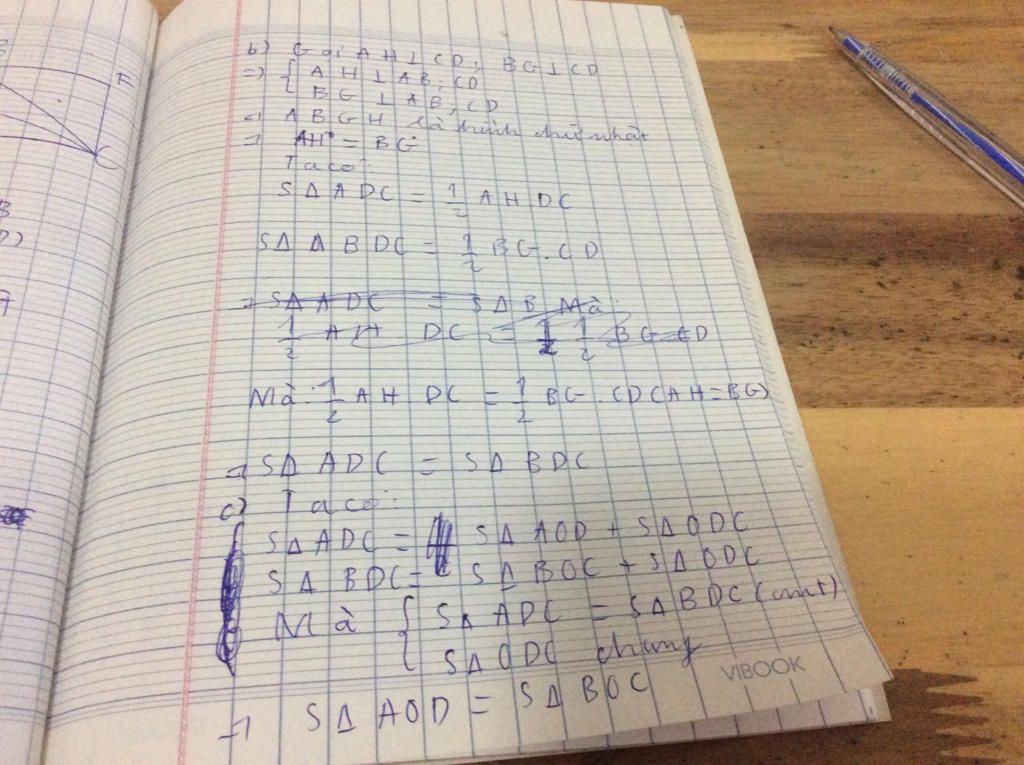 F
C
B
b) Gọi AH ⊥ CD, BG ⊥ CD
=> { AH ⊥ AB, CD
BG ⊥ AB, CD
=> ABGH là hình chữ nhật
=> AH = BG
Ta có:
SΔ ADC = 1/2 AH DC
SΔ ABDC = 1/2 BG . CD
=> SΔ ADC = SΔ B Mà:
1/2 AH DC = 1/2 BG CD
Mà: 1/2 AH DC = 1/2 BG . CD (AH = BG)
=> SΔ ADC = SΔ BDC
c) Ta có:
SΔ ADC = SΔ AOD + SΔ ODC
SΔ BDC = SΔ BOC + SΔ ODC
Mà { SΔ ADC = SΔ BDC (cmt)
SΔ ODC chung
VIBOOK
=> SΔ AOD = SΔ BOC